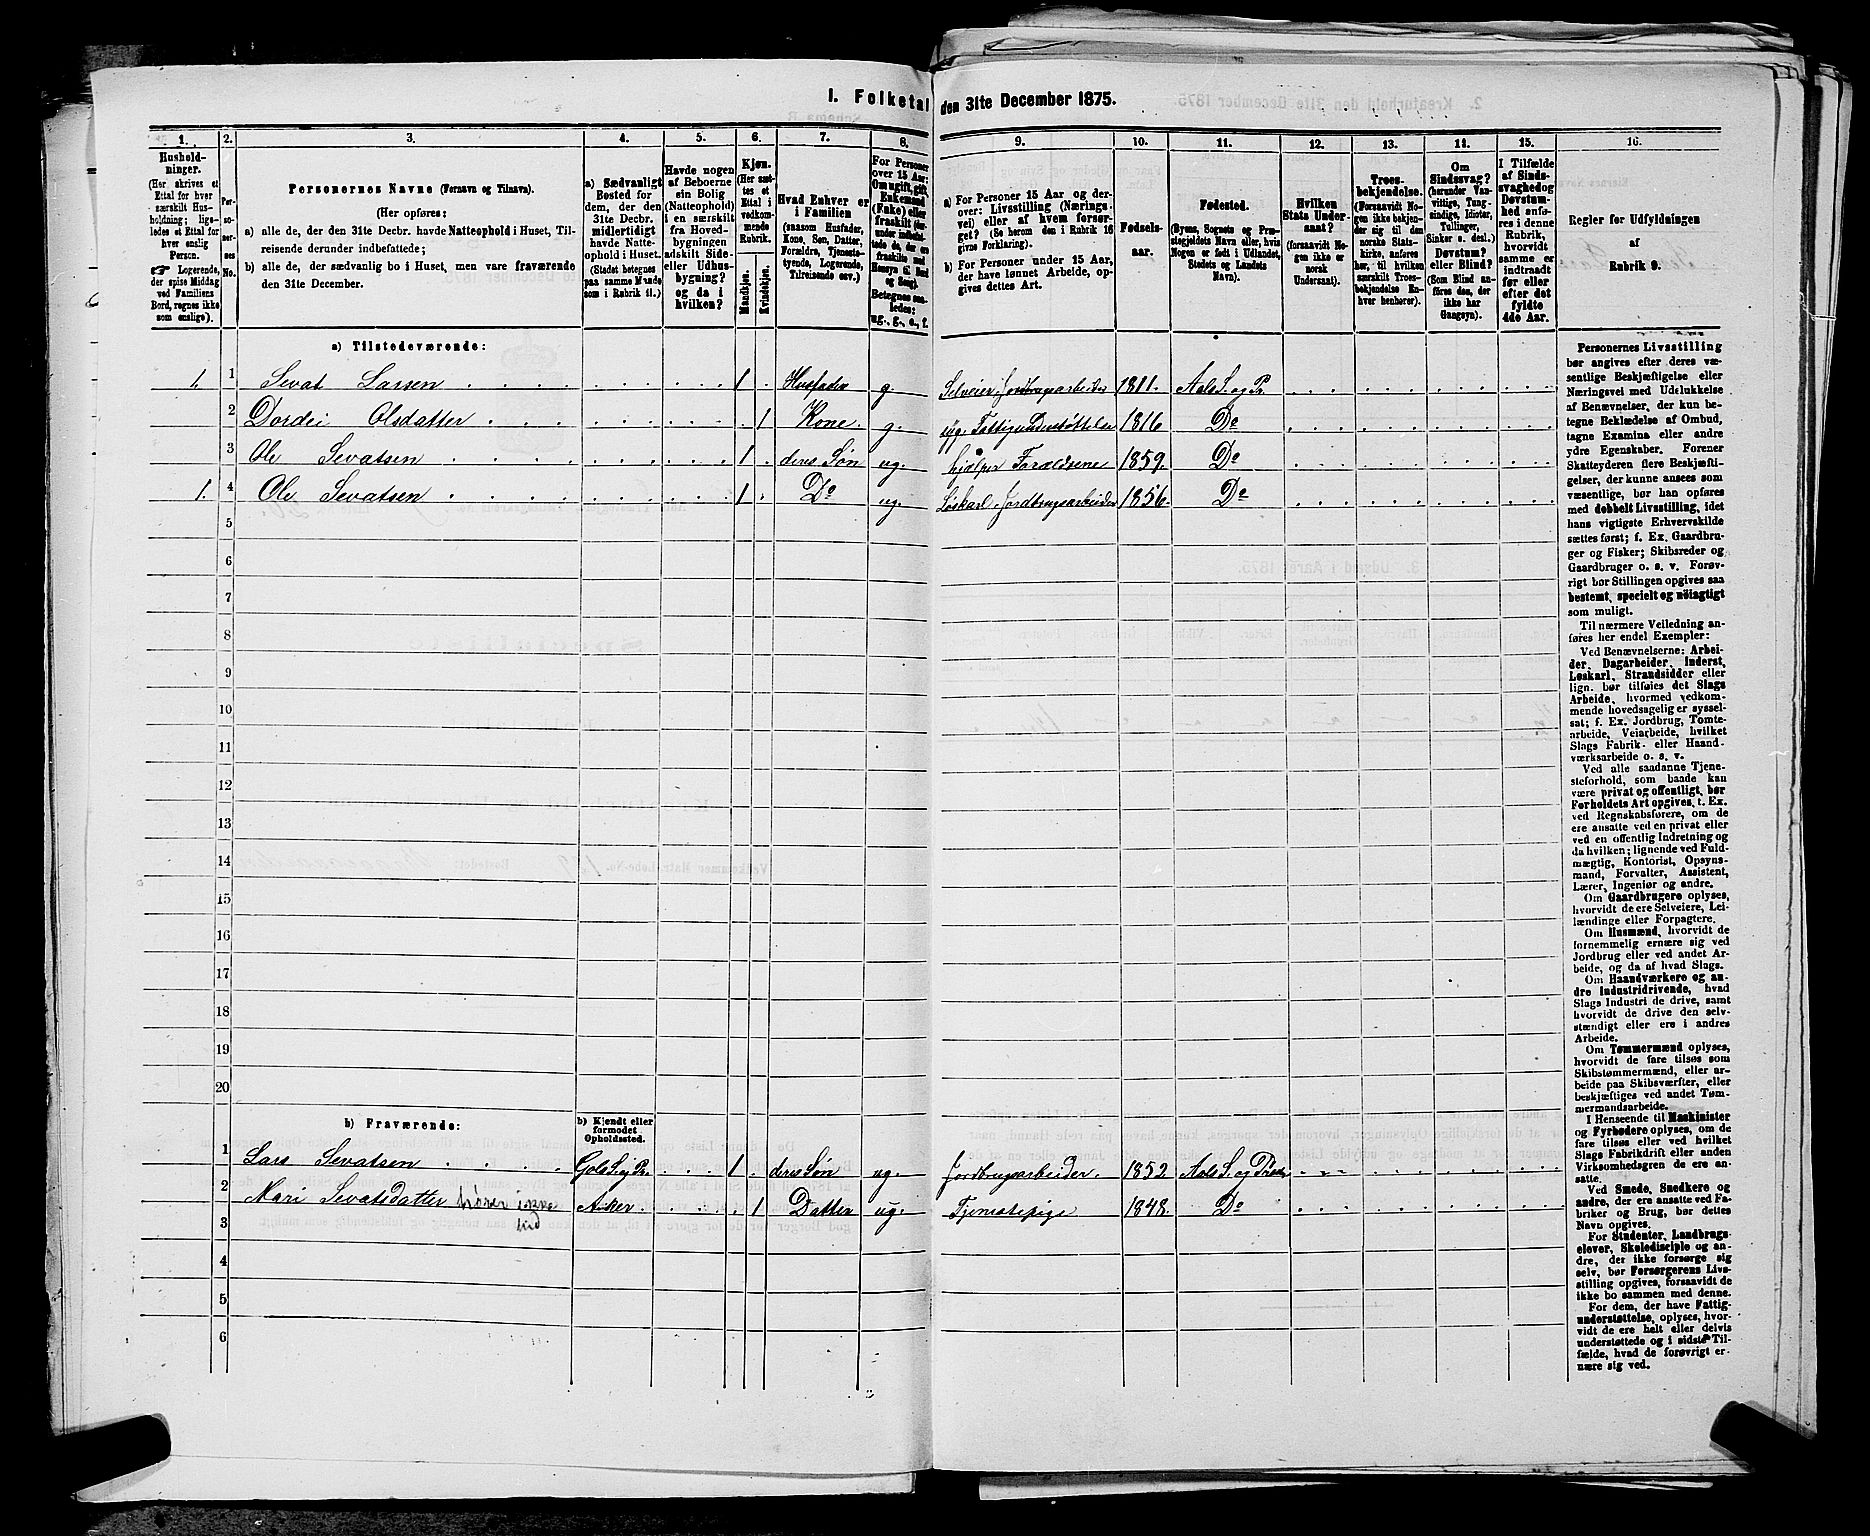 1. Folketal den 31te December 1875.
1. 2. 3. 4. 5. 6. 7. 8. 9. 10. 11. 12. 13. 14. 15. 16.
Hushold-
ninger.
(Her skrives et
Ettal for hver
særskilt Hus-
holdning; lige-
ledes et Ettal for
hver enslig
Person.
☛ Logerende,
der spise Middag
ved Familiens
Bord, regnes ikke
som enslige).
Per-
so-
ner-
nes
No.
Personernes Navne (Fornavn og Tilnavn).
(Her opføres:
a) alle de, der den 31te Decbr. havde Natteophold i Huset, Til-
reisende derunder indbefattede;
b) alle de, der sædvanlig bo i Huset, men vare fraværende
den 31te December.
a) Sædvanligt
Bosted for
dem, der den
31te Decbr.
midlertidigt
havde Natte-
ophold i Huset.
(Stedet betegnes
paa samme Maade
som i Rubrik 11.)
Havde nogen
af Beboerne
sin Bolig
(Natteophold)
i en særskilt
fra Hoved-
bygningen
adskilt Side-
eller Udhus-
bygning?
og da i
hvilken?
Kjøn.
(Her sæt-
tes et
Ettal i
vedkom-
mende
Rubrik.
Mandkjøn.
Kvindekjøn.
Hvad Enhver er
i Familien
(saasom Husfader,
Kone, Søn, Datter,
Forældre, Tjeneste-
tyende, Logerende,
Tilreisende osv.)
For Personer
over 15 Aar:
Om ugift, gift,
Enkemand
(Enke) eller
fraskilt
Betegnes saa-
ledes:
ug., g., e., f.
a) For Personer 15 Aar og der-
over: Livsstilling (Nærings-
vei) eller af hvem forsør-
get? (Se herom den i Rubrik 16
givne Forklaring).
b) For Personer under 15 Aar,
der have lønnet Arbeide, op-
gives dettes Art.
Fødsels-
aar.
Fødested.
(Byens, Sognets og Præ-
stegjeldets Navn eller, hvis
Nogen er født i Udlandet,
Stedets og Landets
Navn).
Hvilken
Stats Under-
saat?
(forsaavidt No-
gen ikke er
norsk
Undersaat).
Troes-
bekjendelse.
(Forsaavidt No-
gen ikke bekjen-
der sig til den
norske Stats-
kirke, anføres
her, til hvilken
særskilt Troes-
bekjendelse En-
hver henhører).
Om
Sindssvag?
(herunder Van-
vittige, Tung-
sindige, Idioter,
Sinker o. desl.)
Døvstum?
eller Blind?
(Som Blind an-
føres den, der
ikke har
Gangsyn).
I Tilfælde
af Sinds-
svaghed og
Døvstum-
hed anfø-
res i denne
Rubrik,
hvorvidt
samme er
indtraadt
før eller
efter det
fyldte
4de Aar.
Regler for Udfyldningen
af
Rubrik 9.
a) Tilstedeværende:
1. 1 Sevat Larsen 1 Husfader g. Selveier, Jordbrugsarbeider 1811. Aals S. og Pr.
2 Dordei Olsdatter 1 Kone. g. Fattigunderstøttelse 1816 Do
3 Ole Sevatsen 1 deres Søn ug. hjælper Forældrene 1859. Do
1. 4 Ole Sevatsen 1 Do ug. Løskarl, Jordbrugsarbeider 1856. Do
5
6
7
8
9
10
11
12
13
14
15
16
17
18
19
20
b) Fraværende:
b) Kjendt eller
formodet
Opholdssted.
1 Lars Sevatsen Gols S. og Pr. 1 deres Søn ug. Jordbrugsarbeider. 1852 Aals S. og
2 Mari Sevatsdatter hører ikke hid Aker 1 Datter ug. Tjenestepige 1848. Do
3
4
5
6
Personernes Livsstilling
bør angives efter deres væ-
sentlige Beskjæftigelse eller
Næringsvei med Udelukkelse
af Benævnelser, der kun be-
tegne Beklædelse af Ombud,
tagne Examina eller andre
ydre Egenskaber. Forener
Skatteyderen flere Beskjæfti-
gelser, der kunne ansees som
væsentlige, bør han opføres
med dobbelt Livsstilling, idet
hans vigtigste Erhvervskilde
sættes først; f. Ex. Gaardbru-
ger og Fisker; Skibsreder og
Gaardbruger o. s. v. Forøv-
rigt bør Stillingen opgives saa
bestemt, specielt og nøiagtigt
som muligt.
Til nærmere Veiledning an-
føres her endel Exempler:
Ved Benævnelserne: Arbei-
der, Dagarbeider, Inderst,
Løskarl, Strandsidder eller
lign. bør tilføies det Slags
Arbeide, hvormed vedkom-
mende hovedsagelig er syssel-
sat; f. Ex. Jordbrug, Tomte-
arbeide, Veiarbeide, hvilket
Slags Fabrik- eller Haand-
værksarbeide o. s. v.
Ved alle saadanne Tjene-
steforhold, som baade kan
være privat og offentligt, bør
Forholdets Art opgives, t. Ex.
ved Regnskabsførere, om de
ere ansatte ved en privat eller
ved en offentlig Indretning og
da hvilken; lignende ved Fuld-
mægtig, Kontorist, Opsyns-
mand, Forvalter, Assistent,
Lærer, Ingeniør og andre.
Om Gaardbrugere oplyses,
hvorvidt de ere Selveiere, Lei-
lændinge eller Forpagtere.
Om Husmænd, hvorvidt de
fornemmelig ernære sig ved
Jordbrug eller ved andet Ar-
beide, og da af hvad Slags.
Om Haandværkere og an-
dre Industridrivende, hvad
Slags Industri de drive, samt
hvorvidt de drive den selv-
stændigt eller ere i andres
Arbeide.
Om Tømmermænd oplyses,
hvorvidt de fare tilsøs som
Skibstømmermænd, eller ar-
beide paa Skibsværfter, eller
beskjæftiges ved andet Tøm-
mermandsarbeide.
I Henseende til Maskinister
og Fyrbødere oplyses, om de
fare tilsøs eller ved hvilket
Slags Fabrikdrift eller anden
Virksomhedsgren de ere an-
satte.
Ved Smede, Snedkere og
andre, der ere ansatte ved Fa-
briker og Brug, bør dettes
Navn opgives.
For Studenter, Landbrugs-
elever, Skoledisciple og an-
dre, der ikke forsørge sig
selv, bør Forsørgerens Livs-
stilling opgives, forsaavidt de
ikke bo sammen med denne.
For dem, der have Fattig-
understøttelse, oplyses, hvor-
vidt de ere helt eller delvis
understøttede og i sidste Til-
fælde, hvad de forøvrigt er-
nære sig ved.